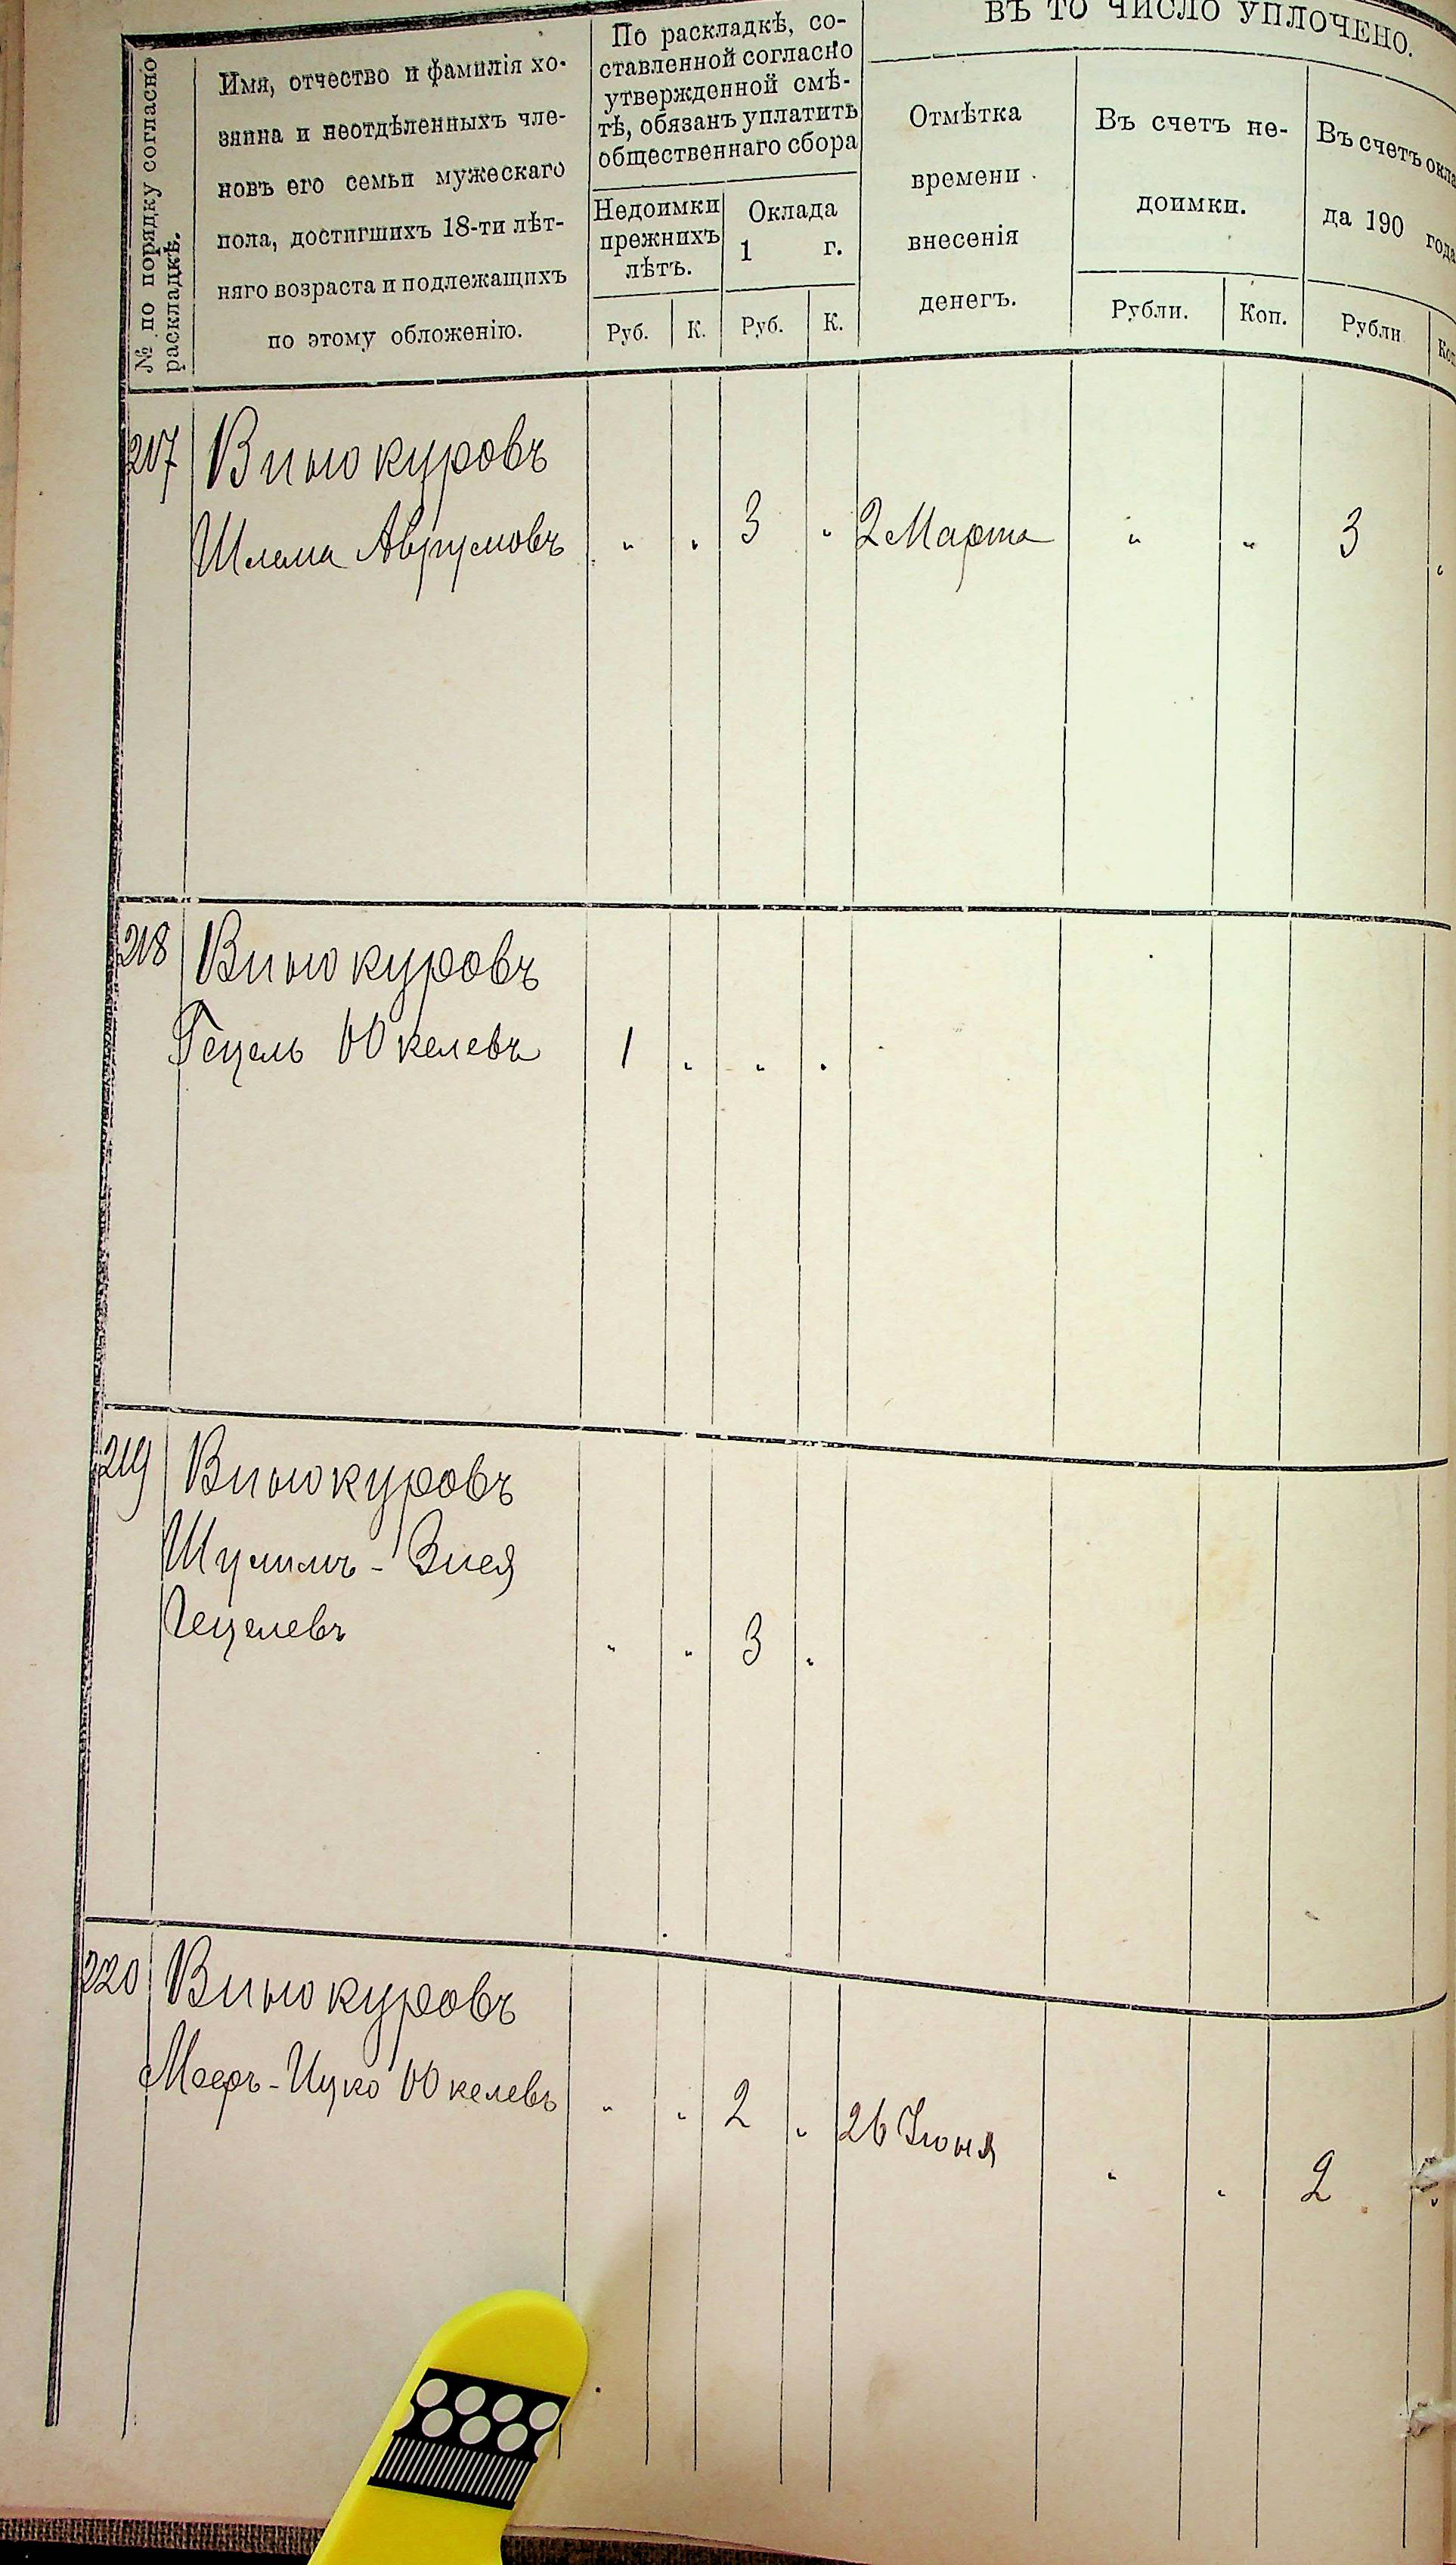 ВЪ ТО ЧИСЛО УПЛОЧЕНО.
№ по порядку согласно
раскладкѣ.
Имя, отчество и фамилія хо-
зяина и неотдѣленныхъ чле-
новъ его семьи мужескаго
пола, достигшихъ 18-ти лѣт-
няго возраста и подлежащихъ
по этому обложенію.
По раскладкѣ, со-
ставленной согласно
утвержденной смѣ-
тѣ, обязанъ уплатить
общественнаго сбора
Недоимки
прежнихъ
лѣтъ.
Оклада
1 г.
Руб. К. Руб. К.
Отмѣтка
времени
внесенія
денегъ.
Въ счетъ не-
доимки.
Рубли. Коп.
Въ счетъ окла
да 190 года
Рубли Коп
217 Винокуровъ
Шлема Аврумовъ „ „ 3 „ 2 Марта „ „ 3 „
218 Винокуровъ
Гецель Юкелевъ 1 „ „ „
219 Винокуровъ
Шулимъ-Зися
Гецелевъ „ „ 3 „
220 Винокуровъ
Мееръ-Ицко Юкелевъ „ „ 2 „ 26 Іюня „ „ 2 „